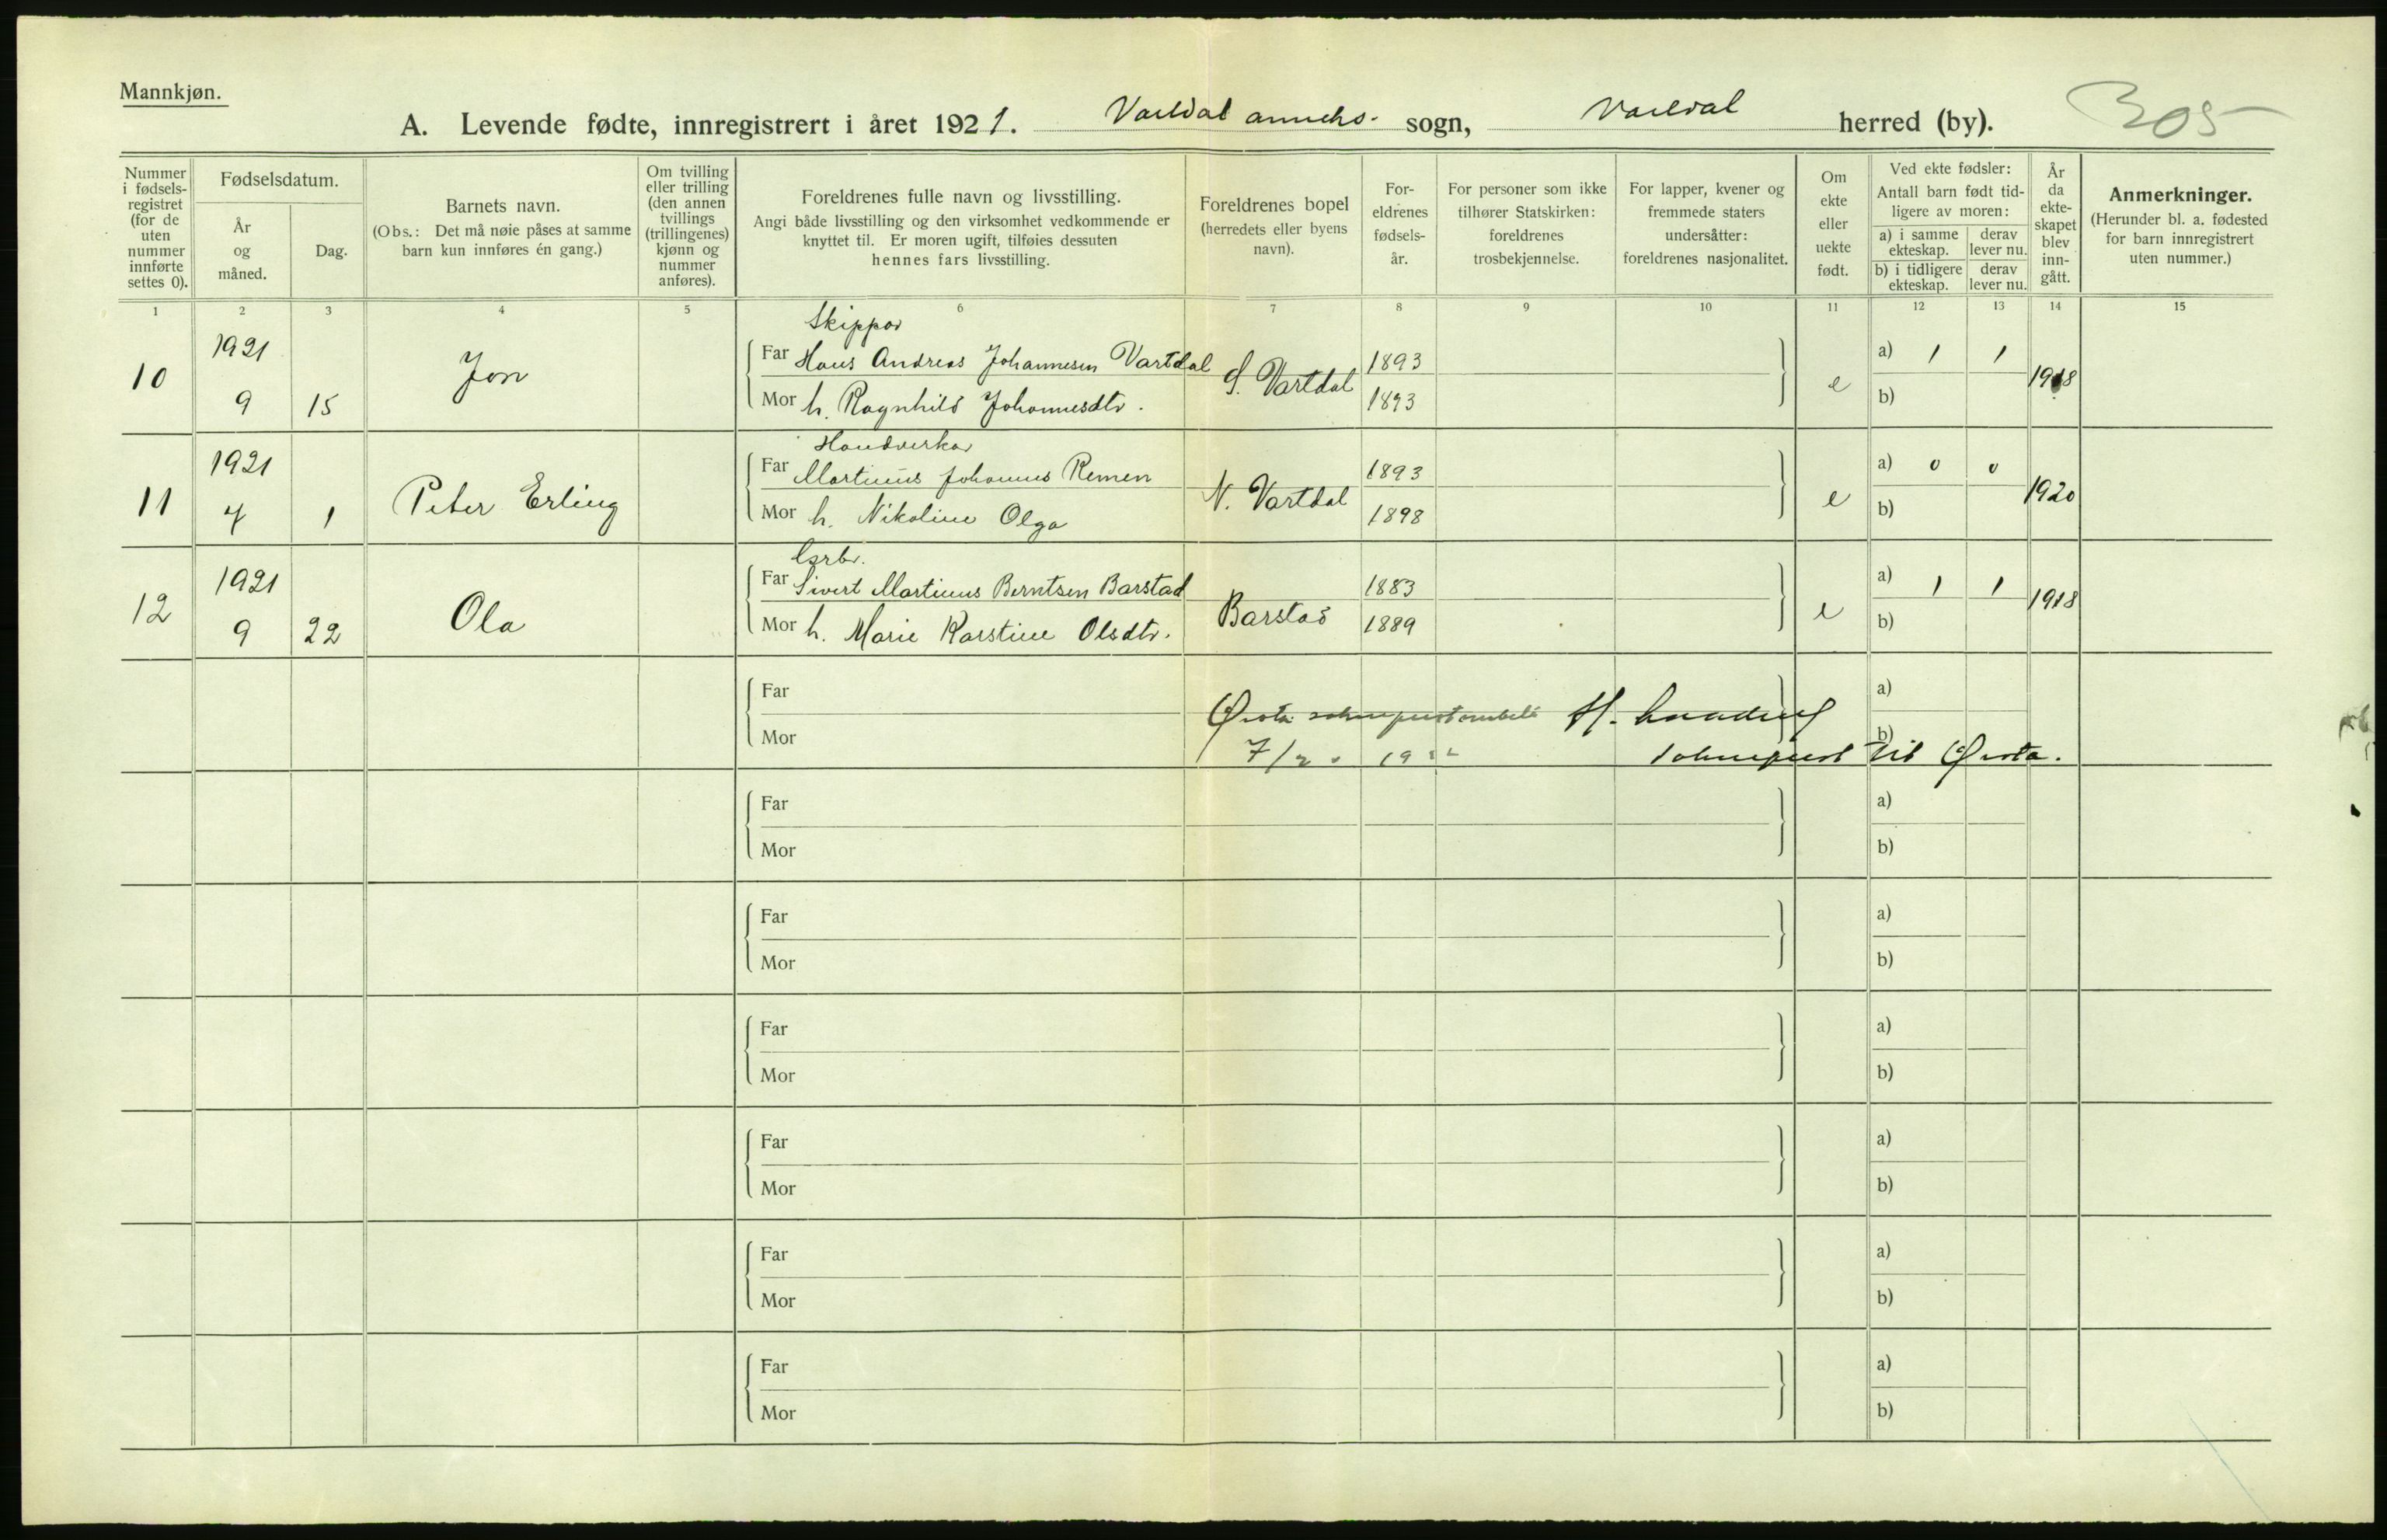 Mannkjøn.
A. Levende fødte, innregistrert i året 1921. Vartdal anneks. sogn, Vartdal herred (by). 305
Nummer i fødsels-registret (for de uten nummer innførte settes 0).
Fødselsdatum.
År og måned.
Dag.
Barnets navn.
(Obs.: Det må nøie påses at samme barn kun innføres én gang.)
Om tvilling eller trilling (den annen tvillings (trillingenes) kjønn og nummer anføres).
Foreldrenes fulle navn og livsstilling.
Angi både livsstilling og den virksomhet vedkommende er knyttet til. Er moren ugift, tilføies dessuten hennes fars livsstilling.
Foreldrenes bopel (herredets eller byens navn).
For-eldrenes fødsels-år.
For personer som ikke tilhører Statskirken: foreldrenes trosbekjennelse.
For lapper, kvener og fremmede staters undersåtter: foreldrenes nasjonalitet.
Om ekte eller uekte født.
Ved ekte fødsler: Antall barn født tid-ligere av moren:
a) i samme ekteskap. derav lever nu.
b) i tidligere ekteskap. derav lever nu.
År da ekte-skapet blev inn-gått.
Anmerkninger.
(Herunder bl. a. fødested for barn innregistrert uten nummer.)
1 2 3 4 5 6 7 8 9 10 11 12 13 14 15
Skippar
10 1921 9 15 Jon Far Hans Andreas Johannesen Vartdal S. Vartdal 1893 e a) 1 1 1918
Mor h. Ragnhild Johannesdtr. 1893 b)
Handverkar
11 1921 7 1 Peter Erling Far Martinus Johannes Remen N. Vartdal 1893 e a) 0 0 1920
Mor h. Nikoline Olga 1898 b)
Grbr.
12 1921 9 22 Ola Far Sivert Martinus Berntsen Barstad Barstad 1883 e a) 1 1 1918
Mor h. Marie Karstine Olsdtr. 1889 b)
Far Ørsta sokneprestembete H. a)
Mor 7/2. 1922 sokneprest til Ørsta. b)
Far a)
Mor b)
Far a)
Mor b)
Far a)
Mor b)
Far a)
Mor b)
Far a)
Mor b)
Far a)
Mor b)